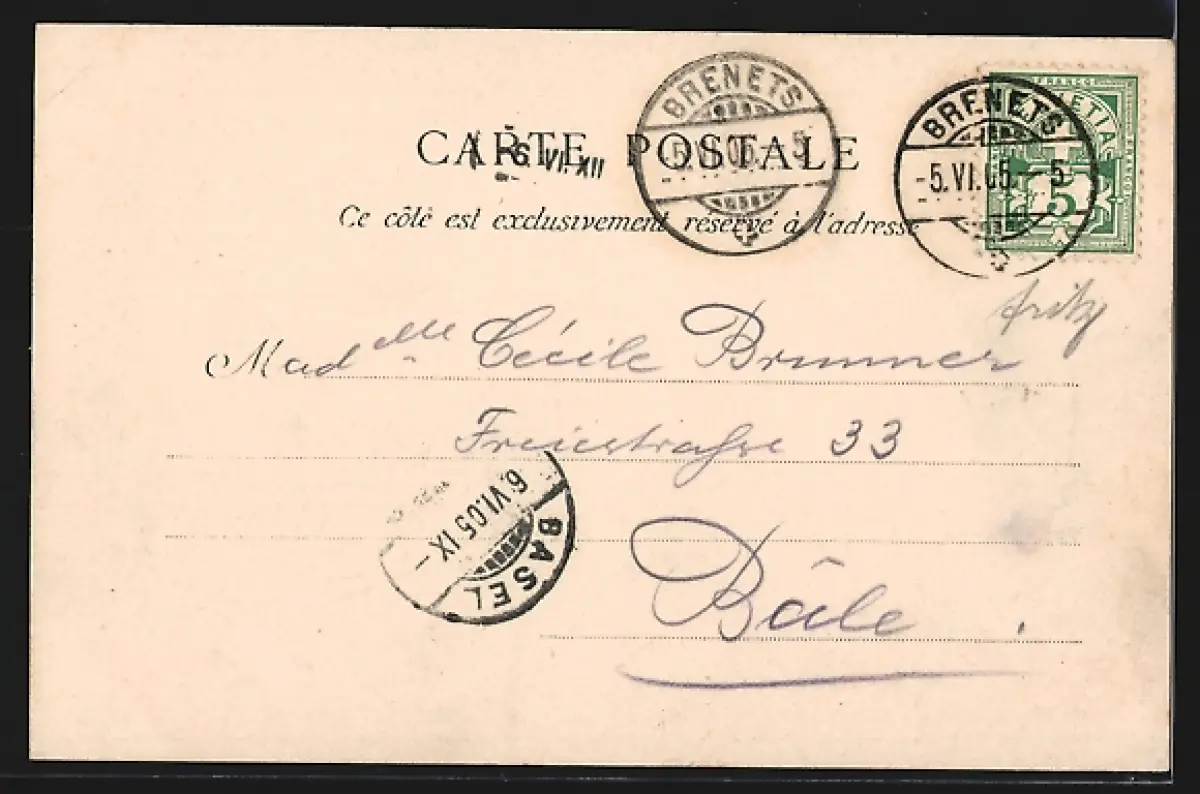 BRENETS
5.VI.05.-5
BRENETS
-5.VI.05.-5
FRANCO
HELVETIA
5
CARTE POSTALE
-6.VI.XII
Ce côté est exclusivement réservé à l'adresse
fritz
Mad elle Cécile Brunner
Freiestrasse 33
6.VI.05.IX-
BASEL
Bâle.